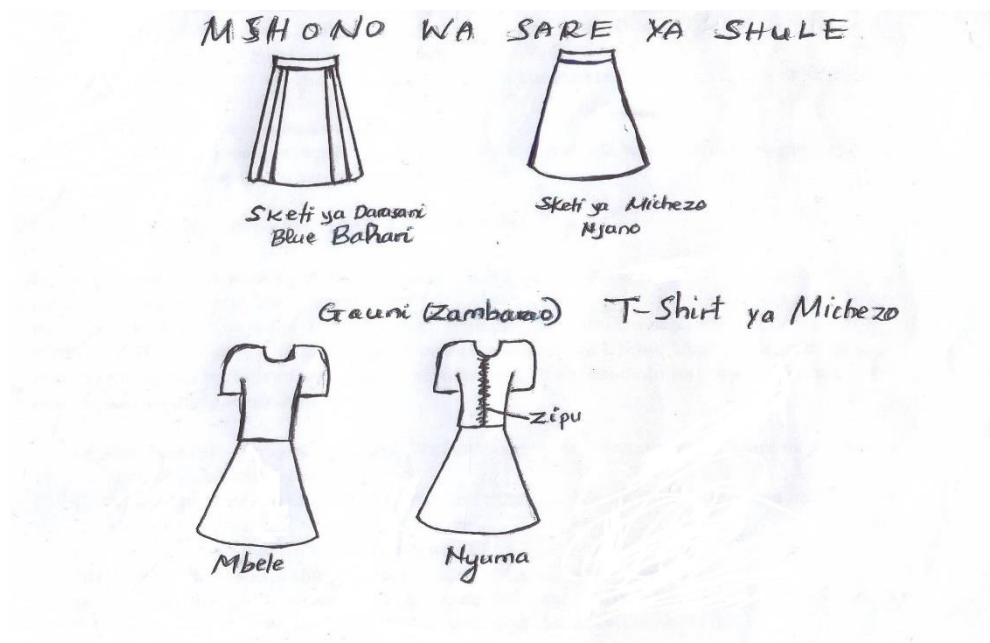 MSHONO WA SARE YA SHULE
Sketi ya Darasani
Blue Bahari
Sketi ya Michezo
Njano
Gauni (Zambarao) T-Shirt ya Michezo
Zipu
Mbele
Nyuma